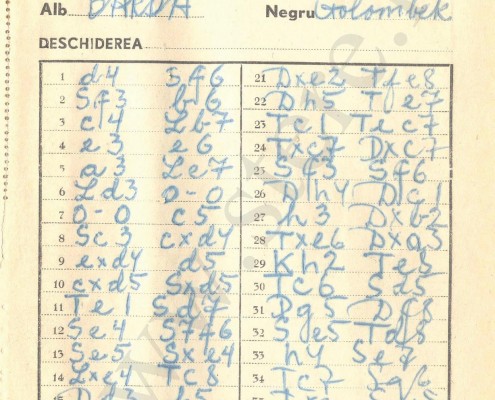 Alb BARDA Negru Golombek
DESCHIDEREA
1 d4 Sf6 21 Dxe3 Tfe8
2 Sf3 b6 22 Dh5 Te7
3 c4 Lb7 23 Tc1 Tec7
4 e3 e6 24 Txc7 Dxc7
5 a3 Le7 25 Sf3 Sf6
6 Ld3 0-0 26 Dh4 Dc1
7 0-0 c5 27 h3 Dxb2
8 Sc3 cxd4 28 Txe6 Dxa3
9 exd4 d5 29 Kh2 Te8
10 cxd5 Sxd5 30 Tc6 Sd5
11 Te1 Sd7 31 Dg5 Df8
12 Se4 S7f6 32 Sge5 Td8
13 Se5 Sxe4 33 h4 Se7
14 Lxe4 Tc8 34 Tc7 Sg6